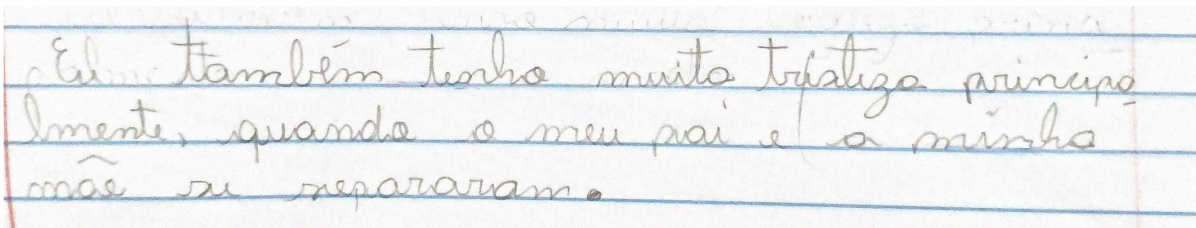 Eu também tenho muita tristeza principa
lmente, quando o meu pai e a minha
mãe se separaram.